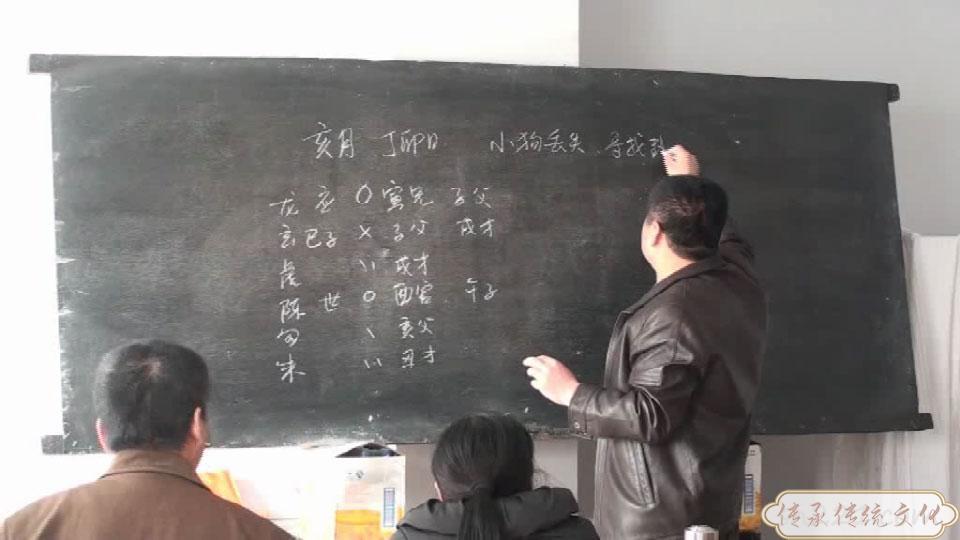 亥月 丁卯日 小狗丢失、寻找
龙 应 〇 寅兄 子父
玄 巳子 × 子父 戌才
虎 〃 戌才
陈 世 〇 酉官、午子
勾 、 亥父
朱 〃 丑才
传承传统文化